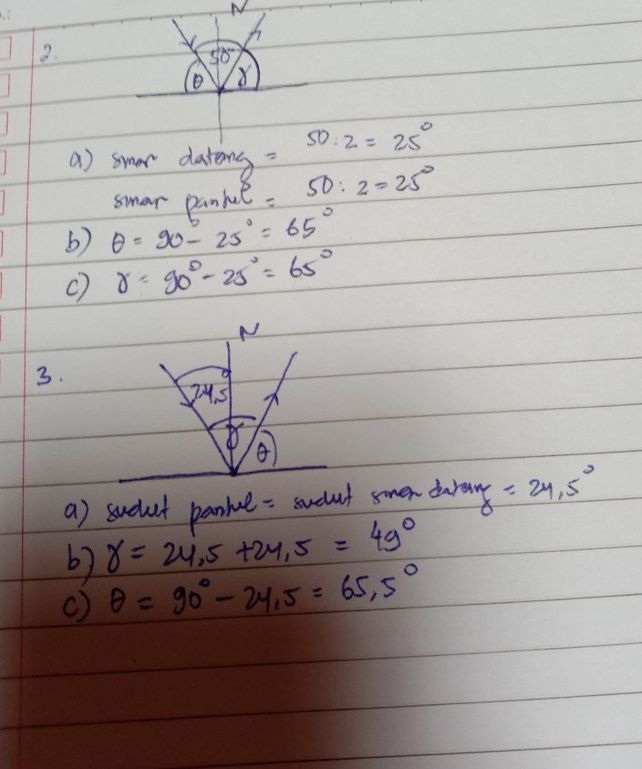 2.
N
50
θ
γ
a) sinar datang = 50 : 2 = 25°
sinar pantul = 50 : 2 = 25°
b) θ = 90° - 25° = 65°
c) γ = 90° - 25° = 65°
3.
N
24,5
γ
θ
a) sudut pantul = sudut sinar datang = 24,5°
b) γ = 24,5 + 24,5 = 49°
c) θ = 90° - 24,5 = 65,5°